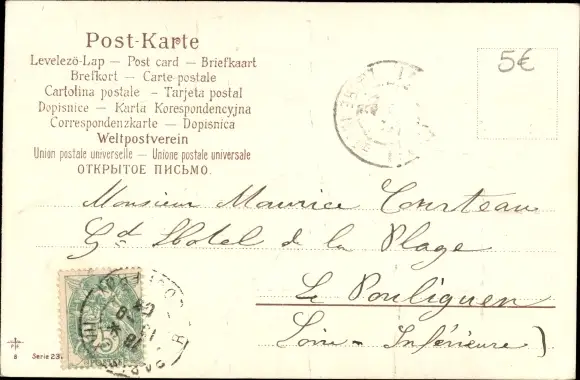 Post-Karte
Levelezö-Lap — Post card — Briefkaart
Brefkort — Carte postale
Cartolina postale - Tarjeta postal
Dopisnice — Karta Korespondencyjna
Correspondenzkarte — Dopisnica
Weltpostverein
Union postale universelle — Unione postale universale
ОТКРЫТОЕ ПИСЬМО.
5€
Monsieur Maurice Courteau
Gd Hotel de la Plage
Le Pouliguen
Loire - Inférieure)
8 Serie 23